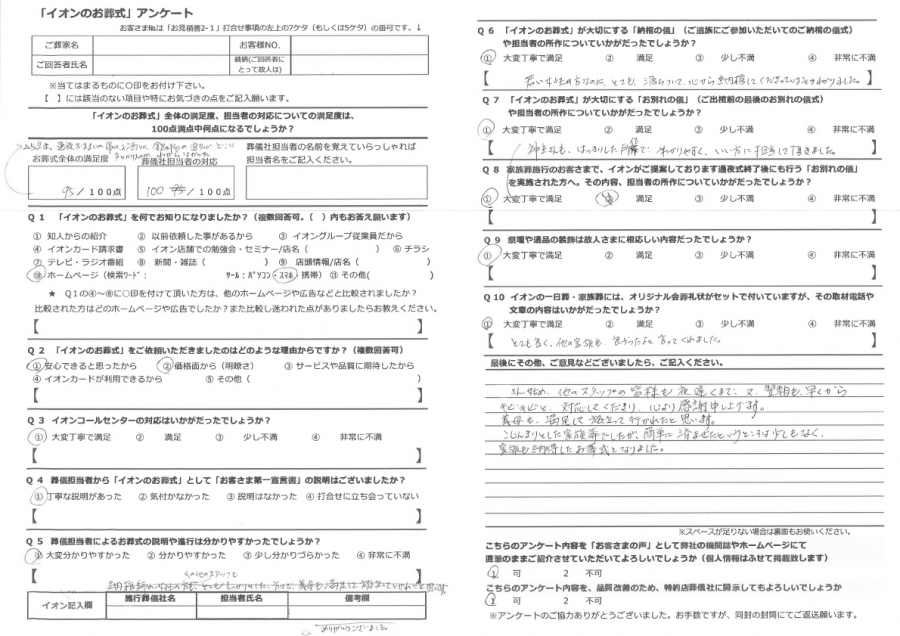 「イオンのお葬式」アンケート
お客さま№は「お見積書2-1」打合せ事項の左上の7ケタ（もしくは5ケタ）の番号です。↓
ご葬家名
お客様NO.
ご回答者氏名
続柄(ご回答者にとって故人は)
※当てはまるものに○印をお付け下さい。
【　】には該当のない項目や特にお気づきの点をご記入願います。
「イオンのお葬式」全体の満足度、担当者の対応についての満足度は、
100点満点中何点になるでしょうか？
お葬式全体の満足度
葬儀社担当者の対応
葬儀社担当者の名前を覚えていらっしゃれば
担当者名をご記入ください。
95/100点
100 /100点
Q１　「イオンのお葬式」を何でお知りになりましたか？（複数回答可。（　）内もお答え願います）
① 知人からの紹介　② 以前依頼した事があるから　③ イオングループ従業員だから
④ イオンカード請求書　⑤ イオン店舗での勉強会・セミナー/店名（　）　⑥ チラシ
⑦ テレビ・ラジオ番組　⑧ 新聞・雑誌（　）　⑨ 店頭情報/店名（　）
⑩ ホームページ（検索ﾜｰﾄﾞ：　ﾂｰﾙ：ﾊﾟｿｺﾝ・ｽﾏﾎ・携帯）⑪ その他(　)
★　Q１の④～⑧に○印を付けて頂いた方は、他のホームページや広告などと比較されましたか？
比較された方はどのホームページや広告でしたか？また比較し迷われた点がありましたらお教えください。
【　】
Q２　「イオンのお葬式」をご依頼いただきましたのはどのような理由からですか？（複数回答可）
①安心できると思ったから　②価格面から（明瞭さ）　③サービスや品質に期待したから
④イオンカードが利用できるから　⑤その他（　）
【　】
Q３　イオンコールセンターの対応はいかがだったでしょうか？
① 大変丁寧で満足　②　満足　③　少し不満　④　非常に不満
【　】
Q４　葬儀担当者から「イオンのお葬式」として「お客さま第一宣言書」の説明はございましたか？
①丁寧な説明があった　② 気付かなかった　③ 説明はなかった　④ 打合せに立ち会っていない
【　】
Q５　葬儀担当者によるお葬式の説明や進行は分かりやすかったでしょうか？
① 大変分かりやすかった　② 分かりやすかった　③ 少し分かりづらかった　④ 非常に不満
【　】
その他のスタッフも
イオン記入欄
施行葬儀社名
担当者氏名
備考欄
ありがとうございました
Q６　「イオンのお葬式」が大切にする「納棺の儀」（ご遺族にご参加いただいてのご納棺の儀式）
や担当者の所作についていかがだったでしょうか？
① 大変丁寧で満足　②　満足　③　少し不満　④　非常に不満
Q７　「イオンのお葬式」が大切にする「お別れの儀」（ご出棺前の最後のお別れの儀式）
や担当者の所作についていかがだったでしょうか？
① 大変丁寧で満足　②　満足　③　少し不満　④　非常に不満
Q８　家族葬施行のお客さまで、イオンがご提案しております通夜式終了後にも行う「お別れの儀」
を実施された方へ。その内容、担当者の所作についていかがだったでしょうか？
① 大変丁寧で満足　②　満足　③　少し不満　④　非常に不満
【　】
Q９　祭壇や遺品の装飾は故人さまに相応しい内容だったでしょうか？
① 大変丁寧で満足　②　満足　③　少し不満　④　非常に不満
【　】
Q10　イオンの一日葬・家族葬には、オリジナル会葬礼状がセットで付いていますが、その取材電話や
文章の内容はいかがだったでしょうか？
① 大変丁寧で満足　②　満足　③　少し不満　④　非常に不満
【とても良く、他の家族も、良かったよと言ってくれました。】
最後にその他、ご意見などございましたら、ご記入ください。
他のスタッフの皆様も夜遅くまで、又、翌朝も早くから
キビキビと、対応してくださり、心より感謝申し上げます。
義母も、満足して旅立って行かれたと思います。
こじんまりとした家族葬でしたが、簡単に済ませたというところは少しもなく、
家族も納得したお葬式となりました。
※スペースが足りない場合は裏面もお使いください。
こちらのアンケート内容を「お客さまの声」として弊社の機関誌やホームページにて
直筆のままご紹介させていただいてよろしいでしょうか（個人情報はふせて掲載致します）
1　可　2　不可
こちらのアンケート内容を、品質改善のため、特約店葬儀社に開示してもよろしいでしょうか
1　可　2　不可
※アンケートのご協力ありがとうございました。お手数ですが、同封の封筒にてご返送願います。